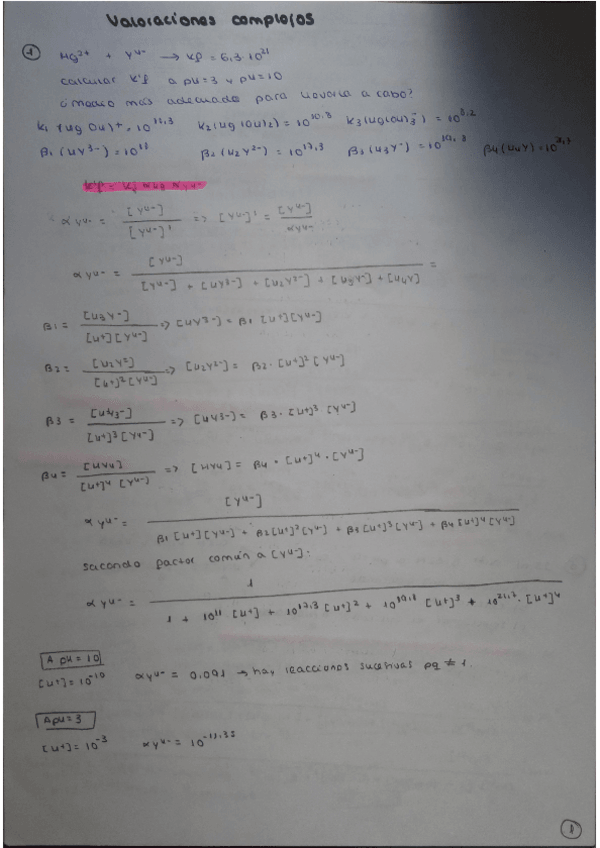 Valoraciones complejos
① Hg²⁺ + Y⁴⁻ → Kf = 6,3·10²¹
calcular K'f a pH=3 y pH=10
¿medio más adecuado para llevarla a cabo?
K₁ (Hg OH)⁺ = 10 K₂(Hg(OH)₂) = 10^10,3 K₃(Hg(OH)₃⁻) = 10
β₁ (HY³⁻) = 10¹¹ β₂ (H₂Y²⁻) = 10^17,3 β₃ (H₃Y⁻) = 10 β₄ (H₄Y) = 10
K'f = Kf αHg αY⁴⁻
αY⁴⁻ = [Y⁴⁻] / [Y⁴⁻]' => [Y⁴⁻]' = [Y⁴⁻] / αY⁴⁻
αY⁴⁻ = [Y⁴⁻] / [Y⁴⁻] + [HY³⁻] + [H₂Y²⁻] + [H₃Y⁻] + [H₄Y] =
β₁ = [H₃Y⁻] / [H⁺][Y⁴⁻] => [HY³⁻] = β₁ [H⁺][Y⁴⁻]
β₂ = [H₂Y²] / [H⁺]²[Y⁴⁻] => [H₂Y²⁻] = β₂·[H⁺]²[Y⁴⁻]
β₃ = [HY₃⁻] / [H⁺]³[Y⁴⁻] => [HY₃⁻] = β₃·[H⁺]³[Y⁴⁻]
β₄ = [HY₄] / [H⁺]⁴ [Y⁴⁻] => [HY₄] = β₄·[H⁺]⁴·[Y⁴⁻]
αY⁴⁻ = [Y⁴⁻] / β₁[H⁺][Y⁴⁻] + β₂[H⁺]²[Y⁴⁻] + β₃[H⁺]³[Y⁴⁻] + β₄[H⁺]⁴[Y⁴⁻]
sacando factor común a [Y⁴⁻]:
αY⁴⁻ = 1 / 1 + 10¹¹ [H⁺] + 10^17,3 [H⁺]² + 10 [H⁺]³ + 10^21,2·[H⁺]⁴
A pH = 10
[H⁺] = 10⁻¹⁰ αY⁴⁻ = 0,091 → hay reacciones sucesivas pq ≠ 1.
A pH=3
[H⁺] = 10⁻³ αY⁴⁻ = 10
1